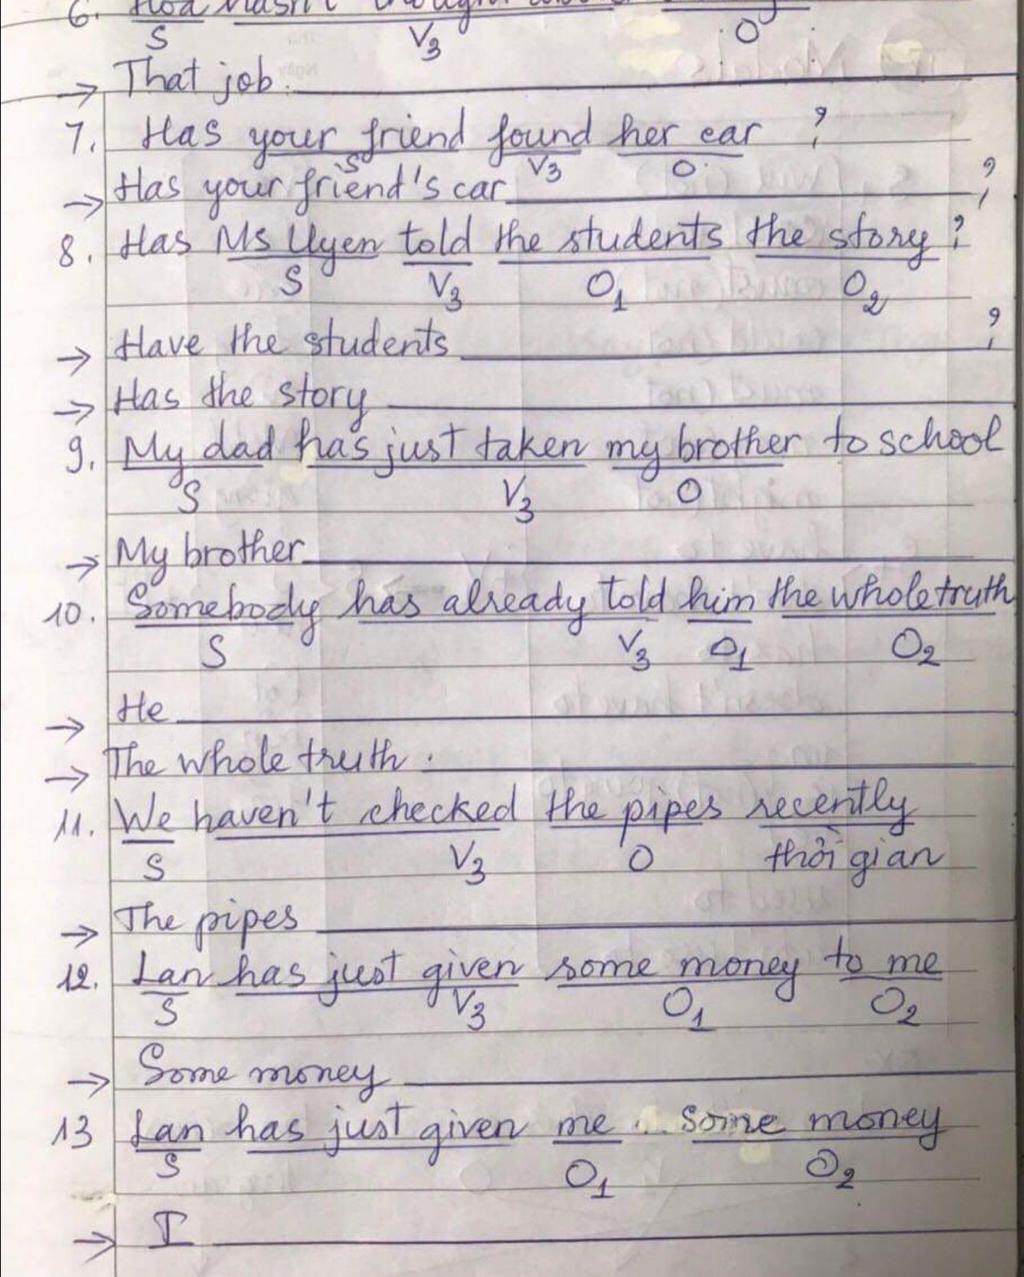 6. Hoa hasn't thought about
S V3 O
→ That job.
7. Has your friend found her car ?
S V3 O
→ Has your friend's car ?
8. Has Ms Uyen told the students the story ?
S V3 O1 O2
→ Have the students ?
→ Has the story
9. My dad has just taken my brother to school
S V3 O
→ My brother
10. Somebody has already told him the whole truth
S V3 O1 O2
→ He
→ The whole truth.
11. We haven't checked the pipes recently
S V3 O thời gian
→ The pipes
12. Lan has just given some money to me
S V3 O1 O2
→ Some money
13 Lan has just given me some money
S O1 O2
→ I